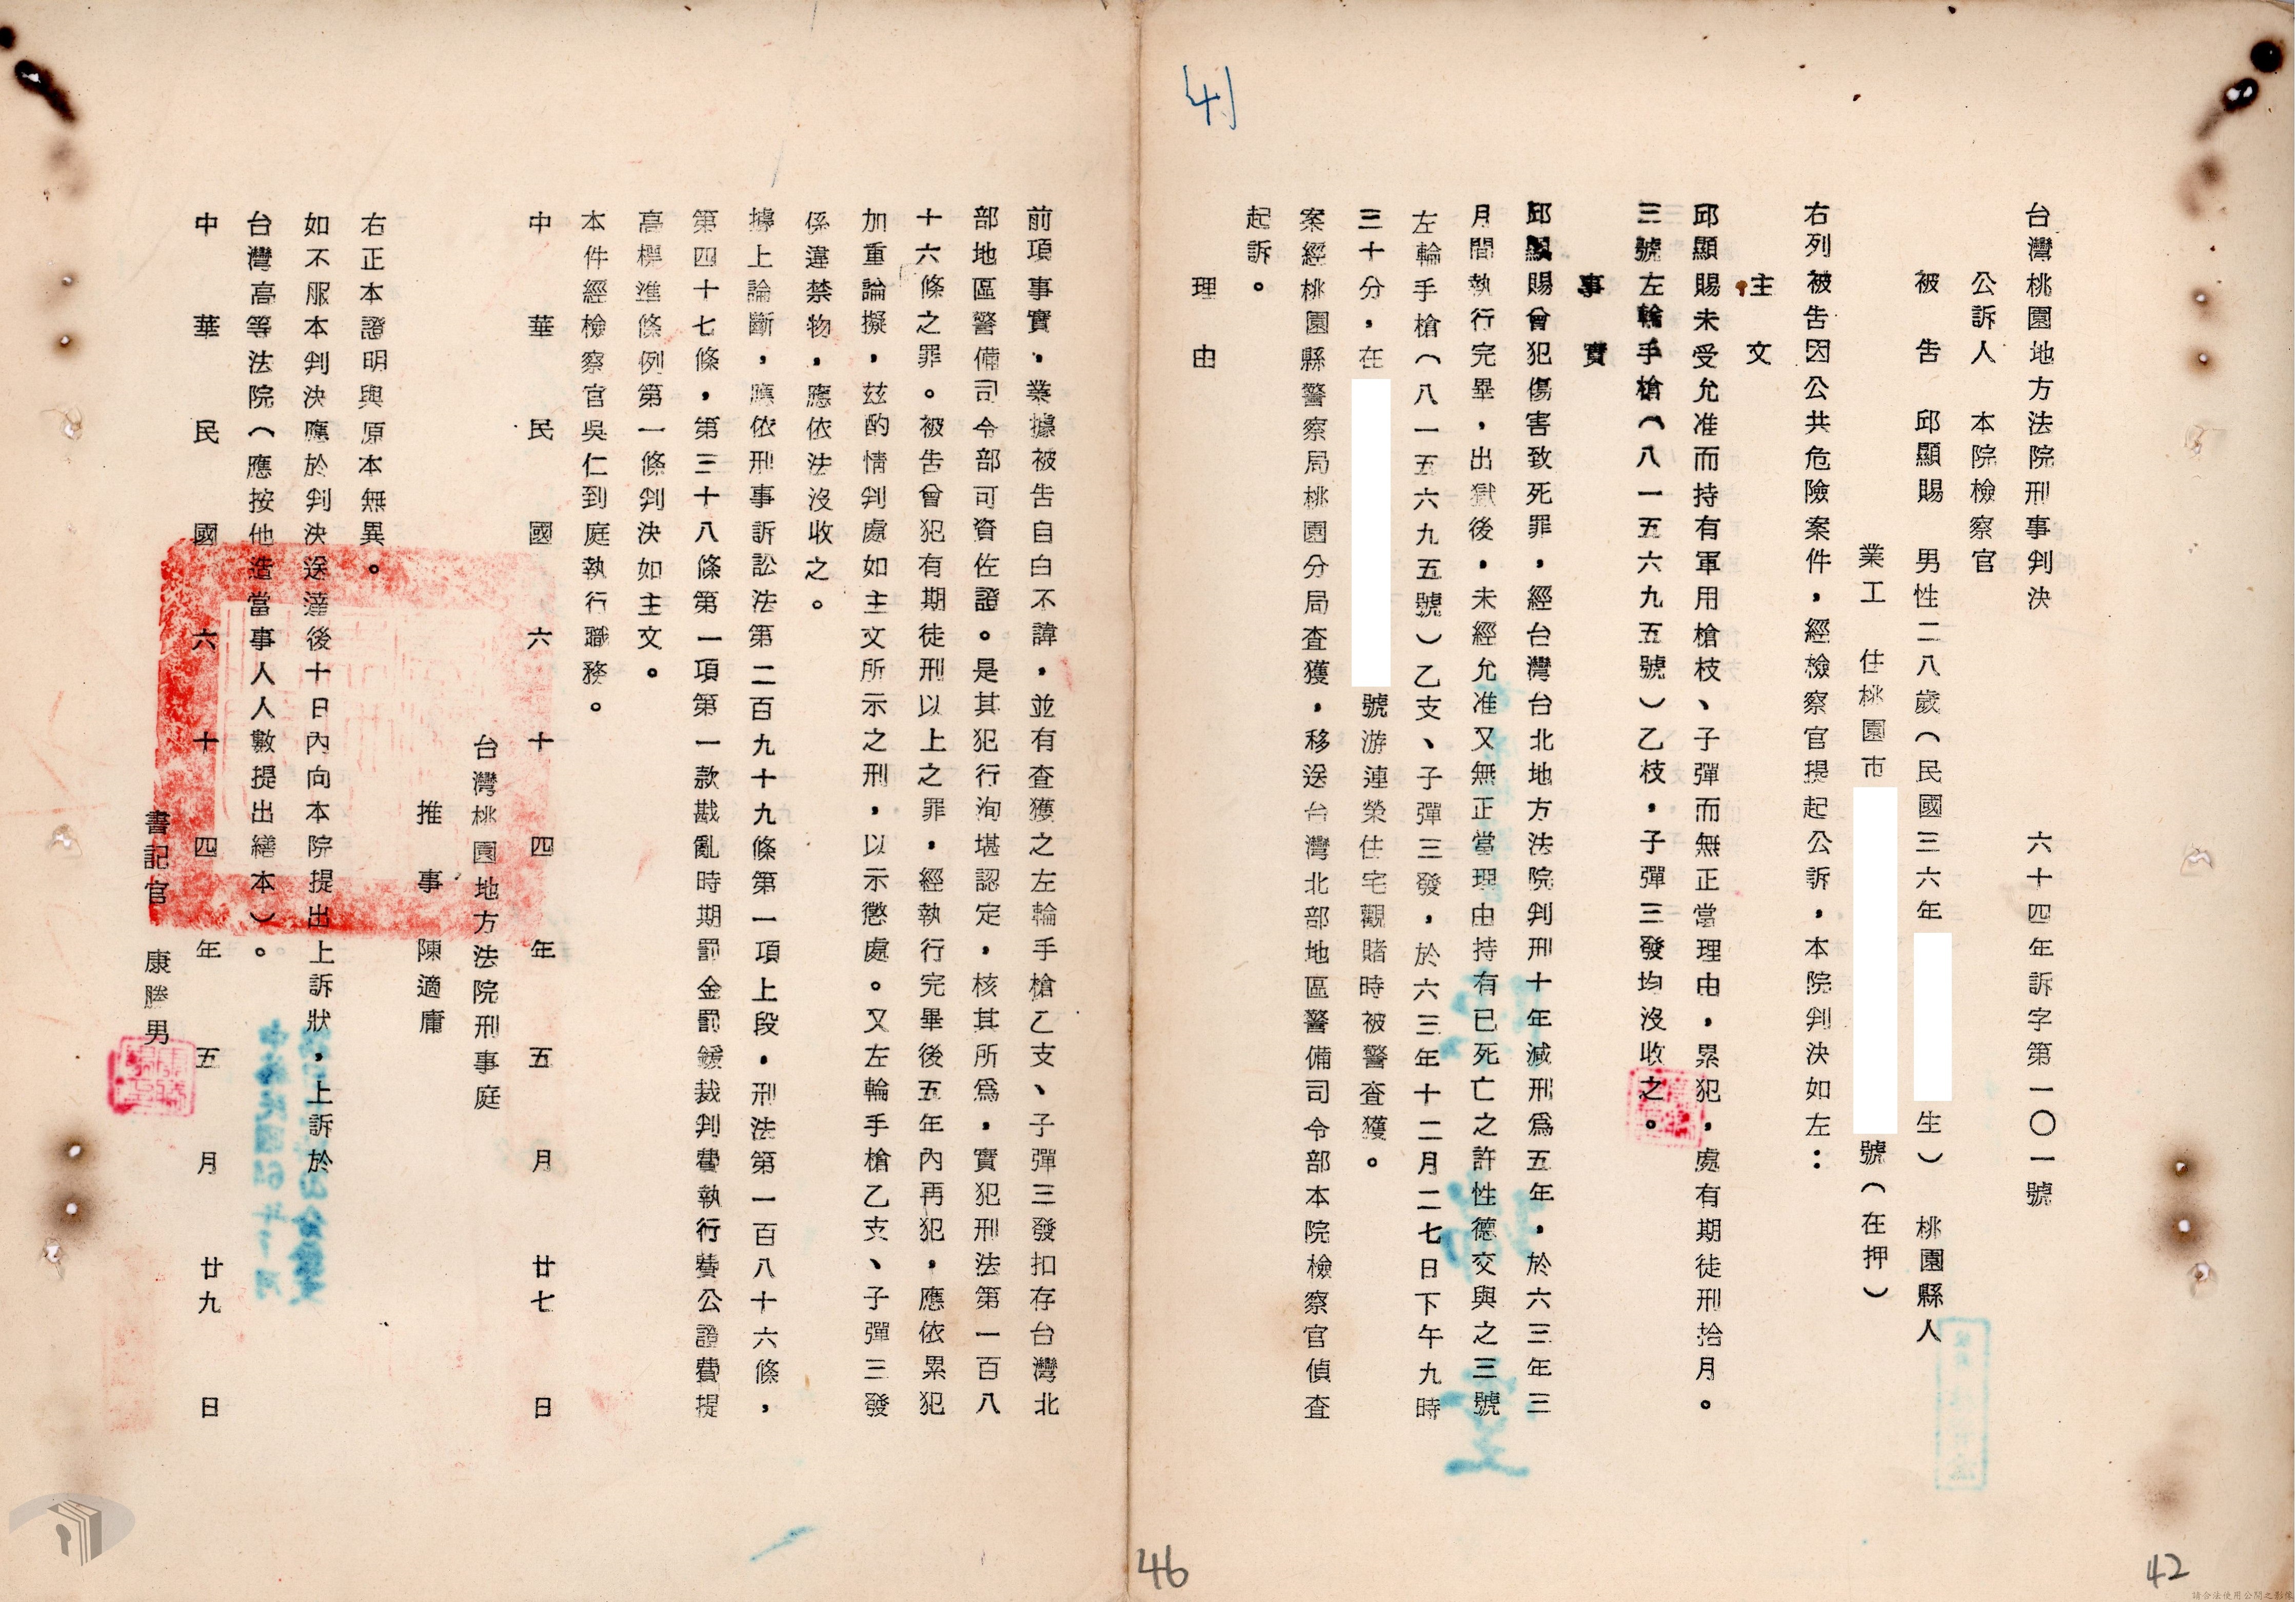 台灣桃園地方法院刑事判決 六十四年訴字第一〇一號
公訴人 本院檢察官
被告 邱顯賜 男性二八歲（民國三六年 生） 桃園縣人
業工 住桃園市 號（在押）
右列被告因公共危險案件，經檢察官提起公訴，本院判決如左：
主文
邱顯賜未受允准而持有軍用槍枝、子彈而無正當理由，累犯，處有期徒刑拾月。
三號左輪手槍（八一五六九五號）乙枝，子彈三發均沒收之。
事實
邱顯賜曾犯傷害致死罪，經台灣台北地方法院判刑十年減刑為五年，於六三年三
月間執行完畢，出獄後，未經允准又無正當理由持有已死亡之許性德交與之三號
左輪手槍（八一五六九五號）乙支、子彈三發，於六三年十二月二七日下午九時
三十分，在 號游連榮住宅觀賭時被警查獲。
案經桃園縣警察局桃園分局查獲，移送台灣北部地區警備司令部本院檢察官偵查
起訴。
理由
前項事實，業據被告自白不諱，並有查獲之左輪手槍乙支、子彈三發扣存台灣北
部地區警備司令部可資佐證。是其犯行洵堪認定，核其所為，實犯刑法第一百八
十六條之罪。被告曾犯有期徒刑以上之罪，經執行完畢後五年內再犯，應依累犯
加重論擬，茲酌情判處如主文所示之刑，以示懲處。又左輪手槍乙支、子彈三發
係違禁物，應依法沒收之。
據上論斷，應依刑事訴訟法第二百九十九條第一項上段，刑法第一百八十六條，
第四十七條，第三十八條第一項第一款戡亂時期罰金罰鍰裁判費執行費公證費提
高標準條例第一條判決如主文。
本件經檢察官吳仁到庭執行職務。
中華民國六十四年五月廿七日
台灣桃園地方法院刑事庭
推事 陳適庸
右正本證明與原本無異。
如不服本判決應於判決送達後十日內向本院提出上訴狀，上訴於
台灣高等法院（應按他造當事人人數提出繕本）。
中華民國六十四年五月廿九日
書記官 康勝男
41
46
42
請合法使用公開之影像